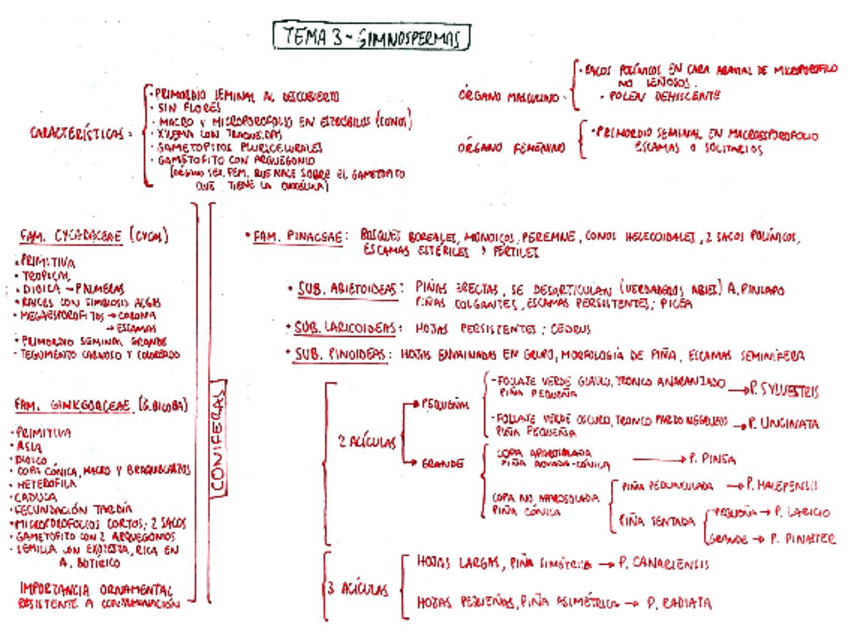 TEMA 3 - GIMNOSPERMAS
CARACTERÍSTICAS:
· PRIMORDIO SEMINAL AL DESCUBIERTO
· SIN FLORES
· MACRO Y MICROSPOROFILO EN ESTRÓBILOS (CONOS)
· XILEMA CON TRAQUEIDAS
· GAMETOFITOS PLURICELULARES
· GAMETOFITO CON ARQUEGONIO
(ÓRGANO SEX. FEM. QUE NACE SOBRE EL GAMETOFITO
QUE TIENE LA OVOCÉLULA)
ÓRGANO MASCULINO
· SACOS POLÍNICOS EN CARA ABAXIAL DE MICROSPOROFILO
NO LEÑOSOS.
· POLEN DEHISCENTE
ÓRGANO FEMENINO
· PRIMORDIO SEMINAL EN MACROESPOROFILO
ESCAMAS O SOLITARIOS
FAM. CYCADACEAE (CYCAS)
· PRIMITIVA
· TROPICAL
· DIOICA → PALMERAS
· RAICES CON SIMBIOSIS ALGAS
· MEGAESPOROFITOS → CORONA
→ ESCAMAS
· PRIMORDIO SEMINAL GRANDE
· TEGUMENTO CARNOSO Y COLOREADO
FAM. GINKGOACEAE (G. BILOBA)
· PRIMITIVA
· ASIA
· DIOICO
· COPA CÓNICA, MACRO Y BRAQUIBLASTOS
· HETEROFILA
· CADUCA
· FECUNDACIÓN TARDÍA
· MICROSPOROFILOS CORTOS; 2 SACOS
· GAMETOFITO CON 2 ARQUEGONIOS
· SEMILLA CON EXOTESTA, RICA EN
A. BUTIRICO
IMPORTANCIA ORNAMENTAL
RESISTENTE A CONTAMINACIÓN
CONIFERAS
· FAM. PINACEAE: BOSQUES BOREALES, MONOICOS, PEREMNE, CONOS HELECOIDALES, 2 SACOS POLÍNICOS,
ESCAMAS ESTÉRILES Y FÉRTILES
· SUB. ABIETOIDEAS: PIÑAS ERECTAS, SE DESARTICULAN (VERDADEROS ABIES) A. PINSAPO
PIÑAS COLGANTES, ESCAMAS PERSISTENTES; PICEA
· SUB. LARICOIDEAS: HOJAS PERSISTENTES; CEDRUS
· SUB. PINOIDEAS: HOJAS ENVAINADAS EN GRUPO, MORFOLOGÍA DE PIÑA, ESCAMAS SEMINIFERA
2 ACÍCULAS
PEQUEÑA
- FOLLAJE VERDE GLAUCO, TRONCO ANARANJADO → P. SYLVESTRIS
PIÑA PEQUEÑA
- FOLLAJE VERDE OSCURO, TRONCO PARDO NEGRUZCO → P. UNCINATA
PIÑA PEQUEÑA
GRANDE
COPA APARASOLADA → P. PINEA
PIÑA AOVADA-CÓNICA
COPA NO APARASOLADA
PIÑA CÓNICA
PIÑA PEDUNCULADA → P. HALEPENSIS
PIÑA SENTADA
PEQUEÑA → P. LARICIO
GRANDE → P. PINASTER
3 ACÍCULAS
HOJAS LARGAS, PIÑA SIMÉTRICA → P. CANARIENSIS
HOJAS PEQUEÑAS, PIÑA ASIMÉTRICA → P. RADIATA